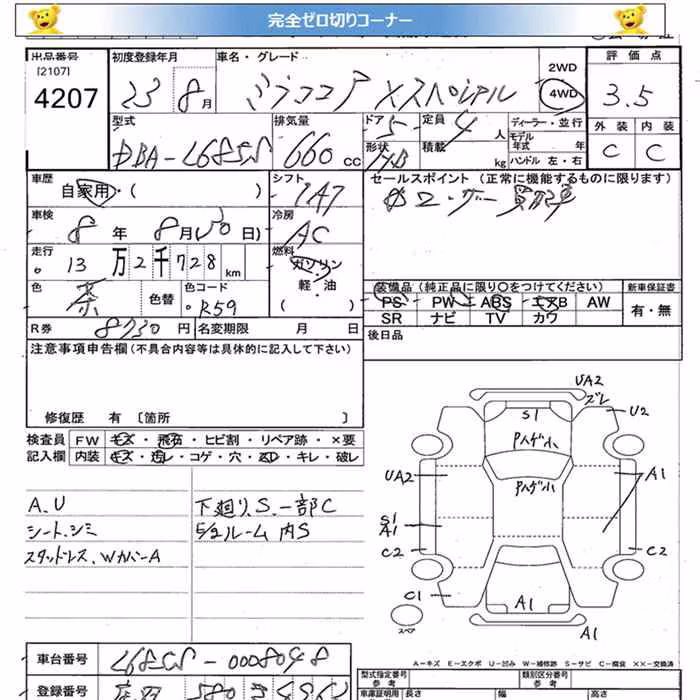 完全ゼロ切りコーナー
出品番号 初度登録年月 車名・グレード 2WD 評価点
[2107]
4207 23 8月 ミラココア Xスペシャル 4WD 3.5
型式 排気量 ドア 定員 ディーラー・並行 外装 内装
DBA-L685S 660cc 5 4人 モデル年式 年 C C
形状 H.B 積載 kg ハンドル 左・右
車歴 シフト セールスポイント (正常に機能するものに限ります)
自家用・( ) IAT ユーザー買取車
車検 冷房
8年 8月(30日) AC
走行 燃料
13万2千728km ガソリン・軽・油
装備品(純正品に限り○をつけてください) 新車保証書
色 色替 色コード PS PW ABS エアB AW 有・無
茶 R59 SR ナビ TV カワ
R券 8730円 名変期限 月 日 後日品
注意事項申告欄(不具合内容等は具体的に記入して下さい)
修復歴 有 [箇所 ]
検査員 FW キズ・飛石・ヒビ割・リペア跡・×要
記入欄 内装 キズ・汚レ・コゲ・穴・・キレ・破レ
A.U 下廻り、S.一部C
シート.シミ ルーム内S
スタッドレス、WカバーA
UA2
ズレ
S1 U2
Pハゲ小
Pハゲ小
UA2 A1
S1
A1
C2 C2
C1 A1
スペア A1
A-キズ E-エクボ U-凹み W-補修跡 S-サビ C-腐食 ××-交換済
車台番号 L685S-0008048
型式指定番号 類別区分番号
参考 参考
登録番号 580
車庫証明用 長さ 幅 高さ